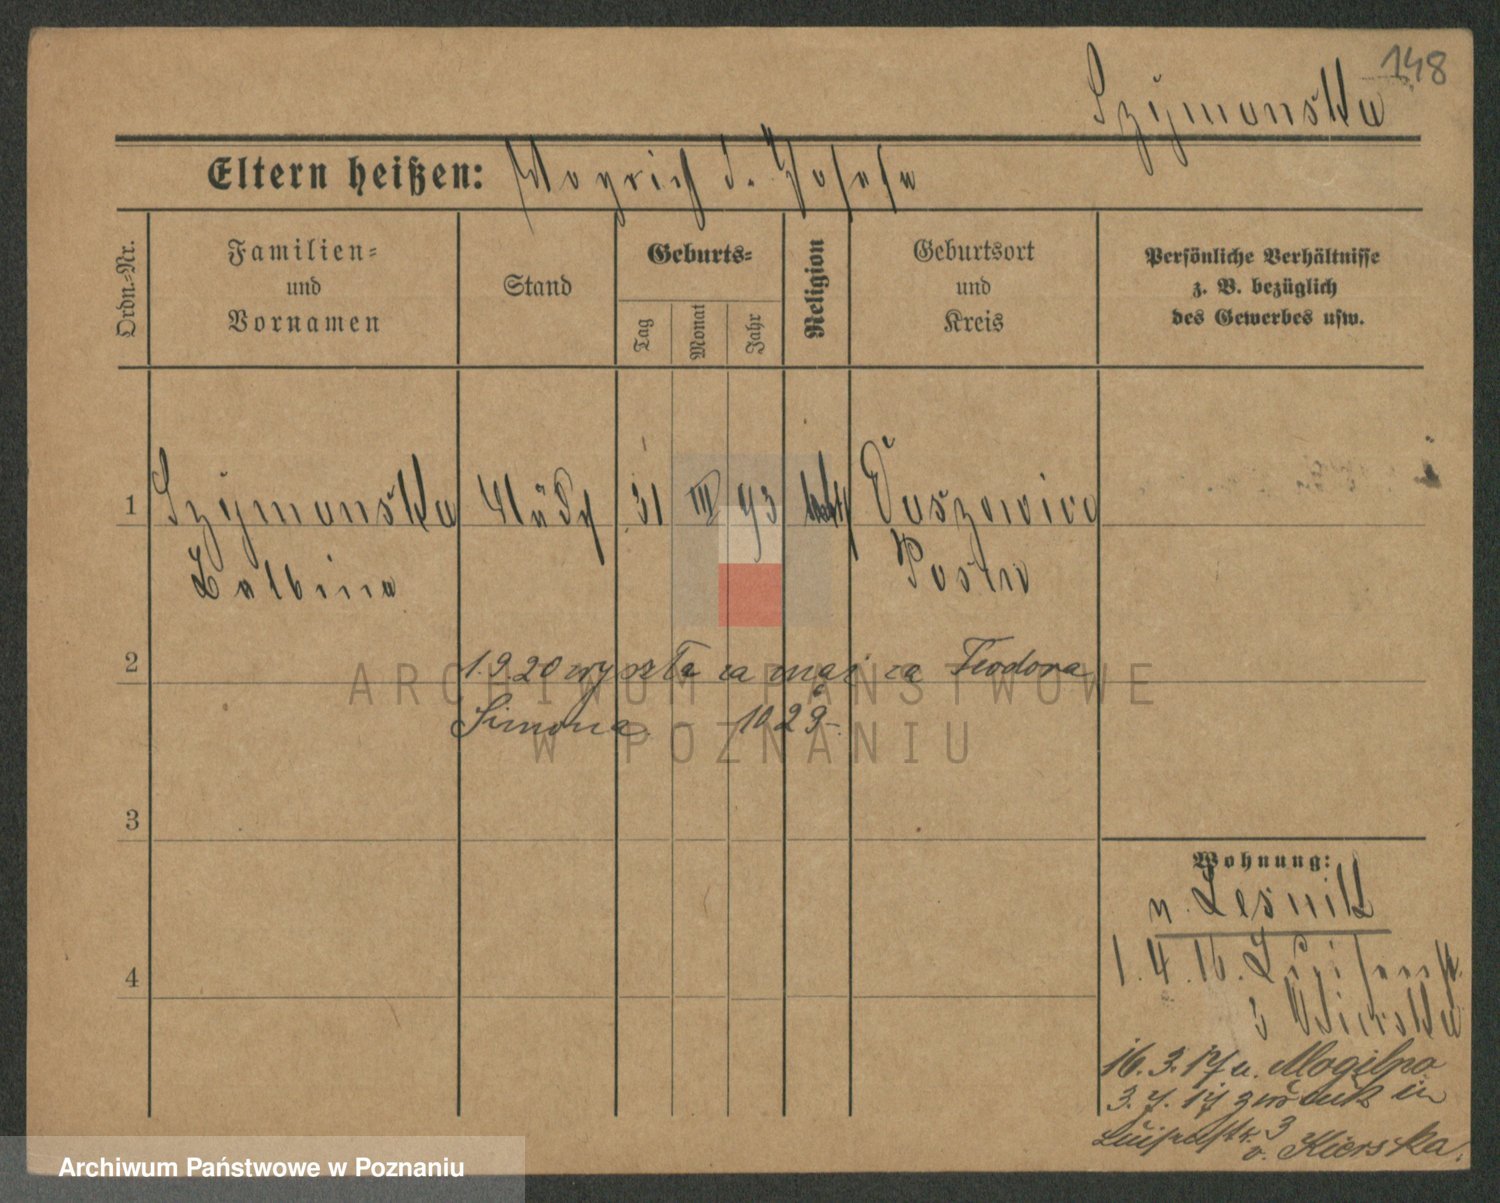 148
Szymanska
Eltern heißen: Josefa
Ordn.-Nr.
Familien-
und
Vornamen
Stand
Geburts-
Tag
Monat
Jahr
Religion
Geburtsort
und
Kreis
Persönliche Verhältnisse
z. B. bezüglich
des Gewerbes usw.
1 Szymanska 31 III 93 kath
Balbina
2 1.9.20 wyszła za mąż za Teodora
Simona 10 29
3
4
Wohnung:
n. Lesnik
1.4.16. Luisenstr.
3
16.3.17 n. Mogilno
3.7.17 zurück in
Luisenstr. 3
v. Kierska.
ARCHIWUM PAŃSTWOWE
W POZNANIU
Archiwum Państwowe w Poznaniu